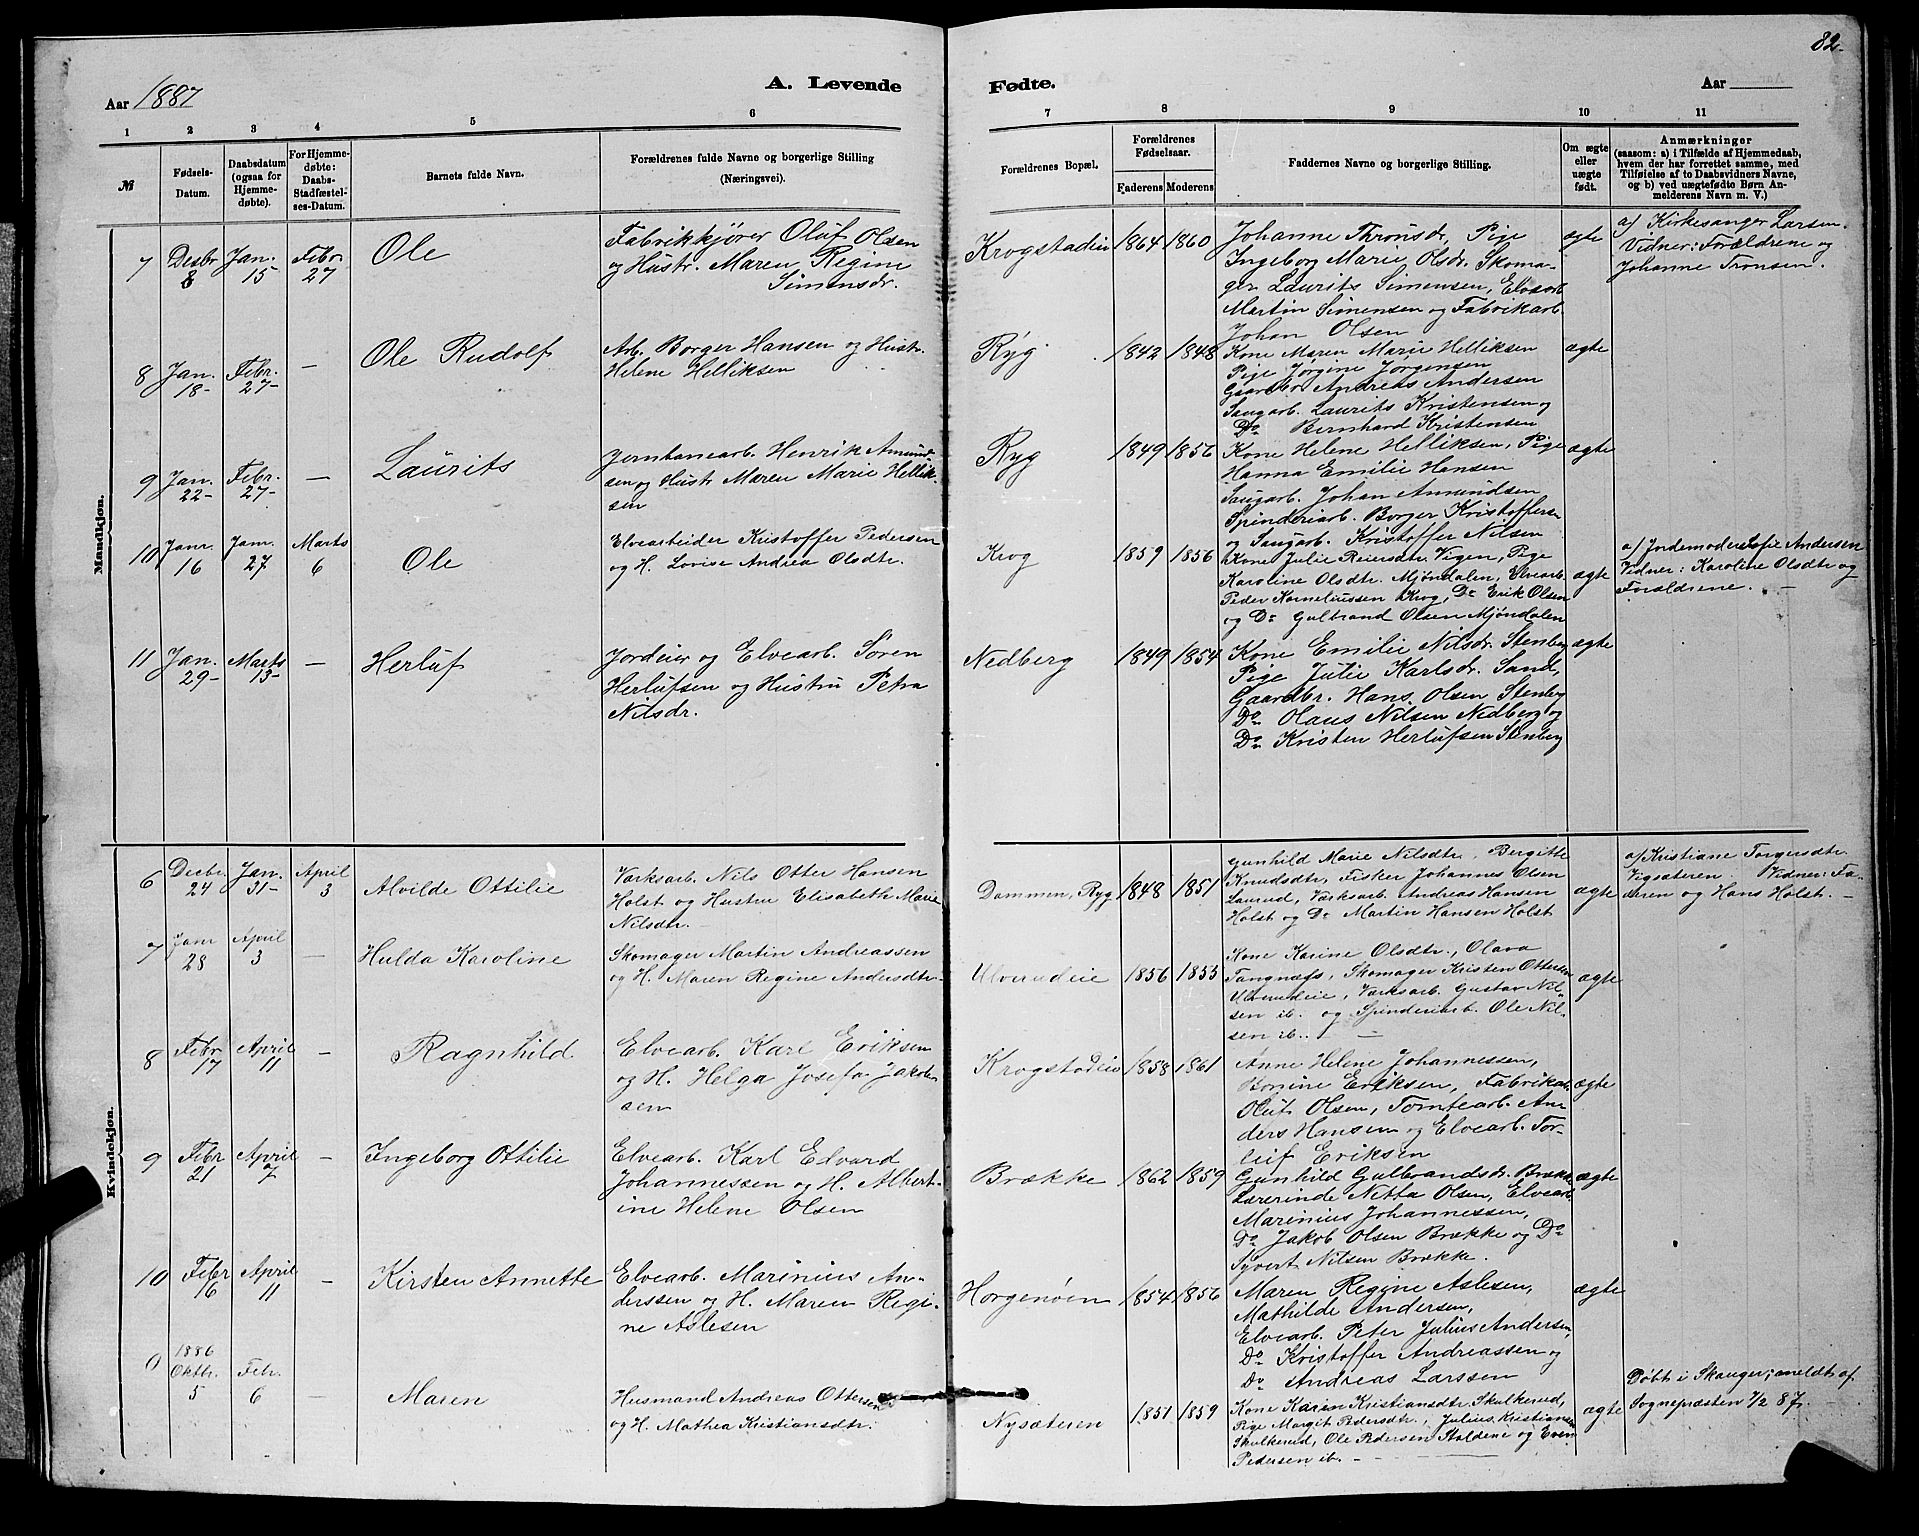 82.
Aar 1887
A. Levende
Fødte.
Aar
1 2 3 4 5 6 7 8 9 10 11
№
Fødsels-Datum.
Daabsdatum (ogsaa for Hjemmedøbte).
For Hjemmedøbte: Daabs-Stadfæstelses-Datum.
Barnets fulde Navn.
Forældrenes fulde Navne og borgerlige Stilling (Næringsvei).
Forældrenes Bopæl.
Forældrenes Fødselsaar.
Faderens Moderens
Faddernes Navne og borgerlige Stilling.
Om ægte eller uægte født.
Anmærkninger
(saasom: a) i Tilfælde af Hjemmedaab, hvem der har forrettet samme, med Tilføielse af to Daabsvidners Navne, og b) ved uægtefødte Børn Anmelderens Navn m. V.)
Mandkjøn.
7 Desbr 8 Jan. 15 Febr 27 Ole
Fabrikkjører Oluf Olsen
og Hustr. Maren Regine
Simensdr.
Krogstadeie 1864 1860
Johanne Thronsdr, Pige
Ingeborg Marie Olsdr. Skoma-
ger Laurits Simensen, Elvearb
Martin Simensen og Fabrikarb.
Johan Olsen
ægte
a) Kirkesanger Larsen.
Vidner: Forældrene og
Johanne Tronsen.
8 Jan. 18- Febr. 27- — Ole Rudolf
Arb. Borger Hansen og Hustr.
Helene Helliksen
Ryg. 1842 1848
Kone Maren Marie Helliksen
Pige Jørgine Jørgensen
Gaardbr. Andreas Andersen
Saugarb. Laurits Kristensen og
Do Bernhard Kristensen
ægte
9 Jan. 22- Febr. 27- — Laurits
Jerntanearb. Henrik Amund-
sen og Hustr Maren Marie Hellik-
sen
Ryg 1849 1856
Kone Helene Helliksen, Pige
Hanna Emilie Hansen
Saugarb. Johan Amundsen
Spinderiarb. Borger Kristoffersen
og Saugarb. Kristoffer Nilsen
ægte
10 Janr. 16 Janr. 27 Marts 6 Ole
Elvearbeider Kristoffer Pedersen
og H. Lovise Andrea Olsdtr.
Krog 1859 1856
Kone Julie Reiersdtr Vigen, Pige
Karoline Olsdtr. Mjøndalen, Elvearb.
Peder Korneliussen Krog, Do Erik Olsen
og Do Gulbrand Olsen Mjøndalen
ægte
a) Jordemoder Sofie Andersen
Vidner: Karoline Olsdtr og
Forældrene. —
11 Jan. 29- Marts 13- — Herluf
Jordeier og Elvearb. Søren
Herlufsen og Hustru Petra
Nilsdr.
Nedberg 1849 1854
Kone Emilie Nilsdr. Stenberg
Pige Julie Karlsdr. Sand,
Gaardbr. Hans Olsen Stenberg
Do Olaus Nilsen Nedberg og
Do Kristen Herlufsen Stenberg
ægte
Kvindekjøn.
6 Decbr. 24 Jan. 31- April 3 Alvilde Ottilie
Værksarb. Nils Otter Hansen
Holst og Hustru Elisabeth Marie
Nilsdtr. —
Dammen, Ryg 1848 1851
Gunhild Marie Nilsdtr, Bergitte
Knudsdtr, Fisker Johannes Olsen
Laurud, Værksarb. Andreas Hansen
Holst og Do Martin Hansen Holst
ægte
a) Kristiane Torgersdtr.
Vigsæteren. Vidner: Fa-
deren og Hans Holst. —
7 Janr 28 April 3 — Hulda Karoline
Skomager Martin Andreassen
og H. Maren Regine Andersdtr.
Ulverudeie 1856 1855
Kone Karine Olsdtr., Olava
Tangnæss, Skomager Kristen Ottersen
Ulverudeie, Værksarb. Gustav Nil-
sen ib. og Spinderiarb. Ole Nil-
sen ib. —
ægte
8 Febr 17 April 11 — Ragnhild
Elvearb. Karl Eriksen
og H. Helga Josefa Jakob-
sen
Krogstadeie 1858 1861
Anne Helene Johannessen,
Bonine Eriksen, Fabrikarb.
Oluf Olsen, Tomtearb. An-
ders Hansen og Elvearb. Tor-
leif Eriksen
ægte
9 Febr 21 April 7 — Ingeborg Ottilie
Elvearb. Karl Edvard
Johannessen og H. Albert-
ine Helene Olsen
Brække 1862 1859
Gunhild Gulbrandsdr. Brække
Lærerinde Nitta Olsen, Elvearb.
Marinius Johannessen,
Do Jakob Olsen Brække og Do
Syvert Nilsen Brække.
ægte
10 Febr 16 April 11 — Kirsten Annette
Elvearb. Marinius An-
derssen og H. Maren Regi-
ne Aslesen
Horgenøen 1854 1856
Maren Regine Aslesen,
Mathilde Andersen,
Elvearb. Peter Julius Andersen,
Do Kristoffer Andreassen og
Do Andreas Larssen
ægte
0 1886 Oktbr. 5 Febr. 6 — Maren
Husmand Andreas Ottersen
og H. Mathea Kristiansdtr.
Nysæteren 1851 1859
Kone Karen Kristiansdtr Skulkerud,
Pige Margit Pedersdtr., Julius Kristiansen
Skulkerud, Ole Pedersen Stoldene og Even
Pedersen ib. —
ægte
Døbt i Skauger; meldt af
Sognepræsten 7/2 87.